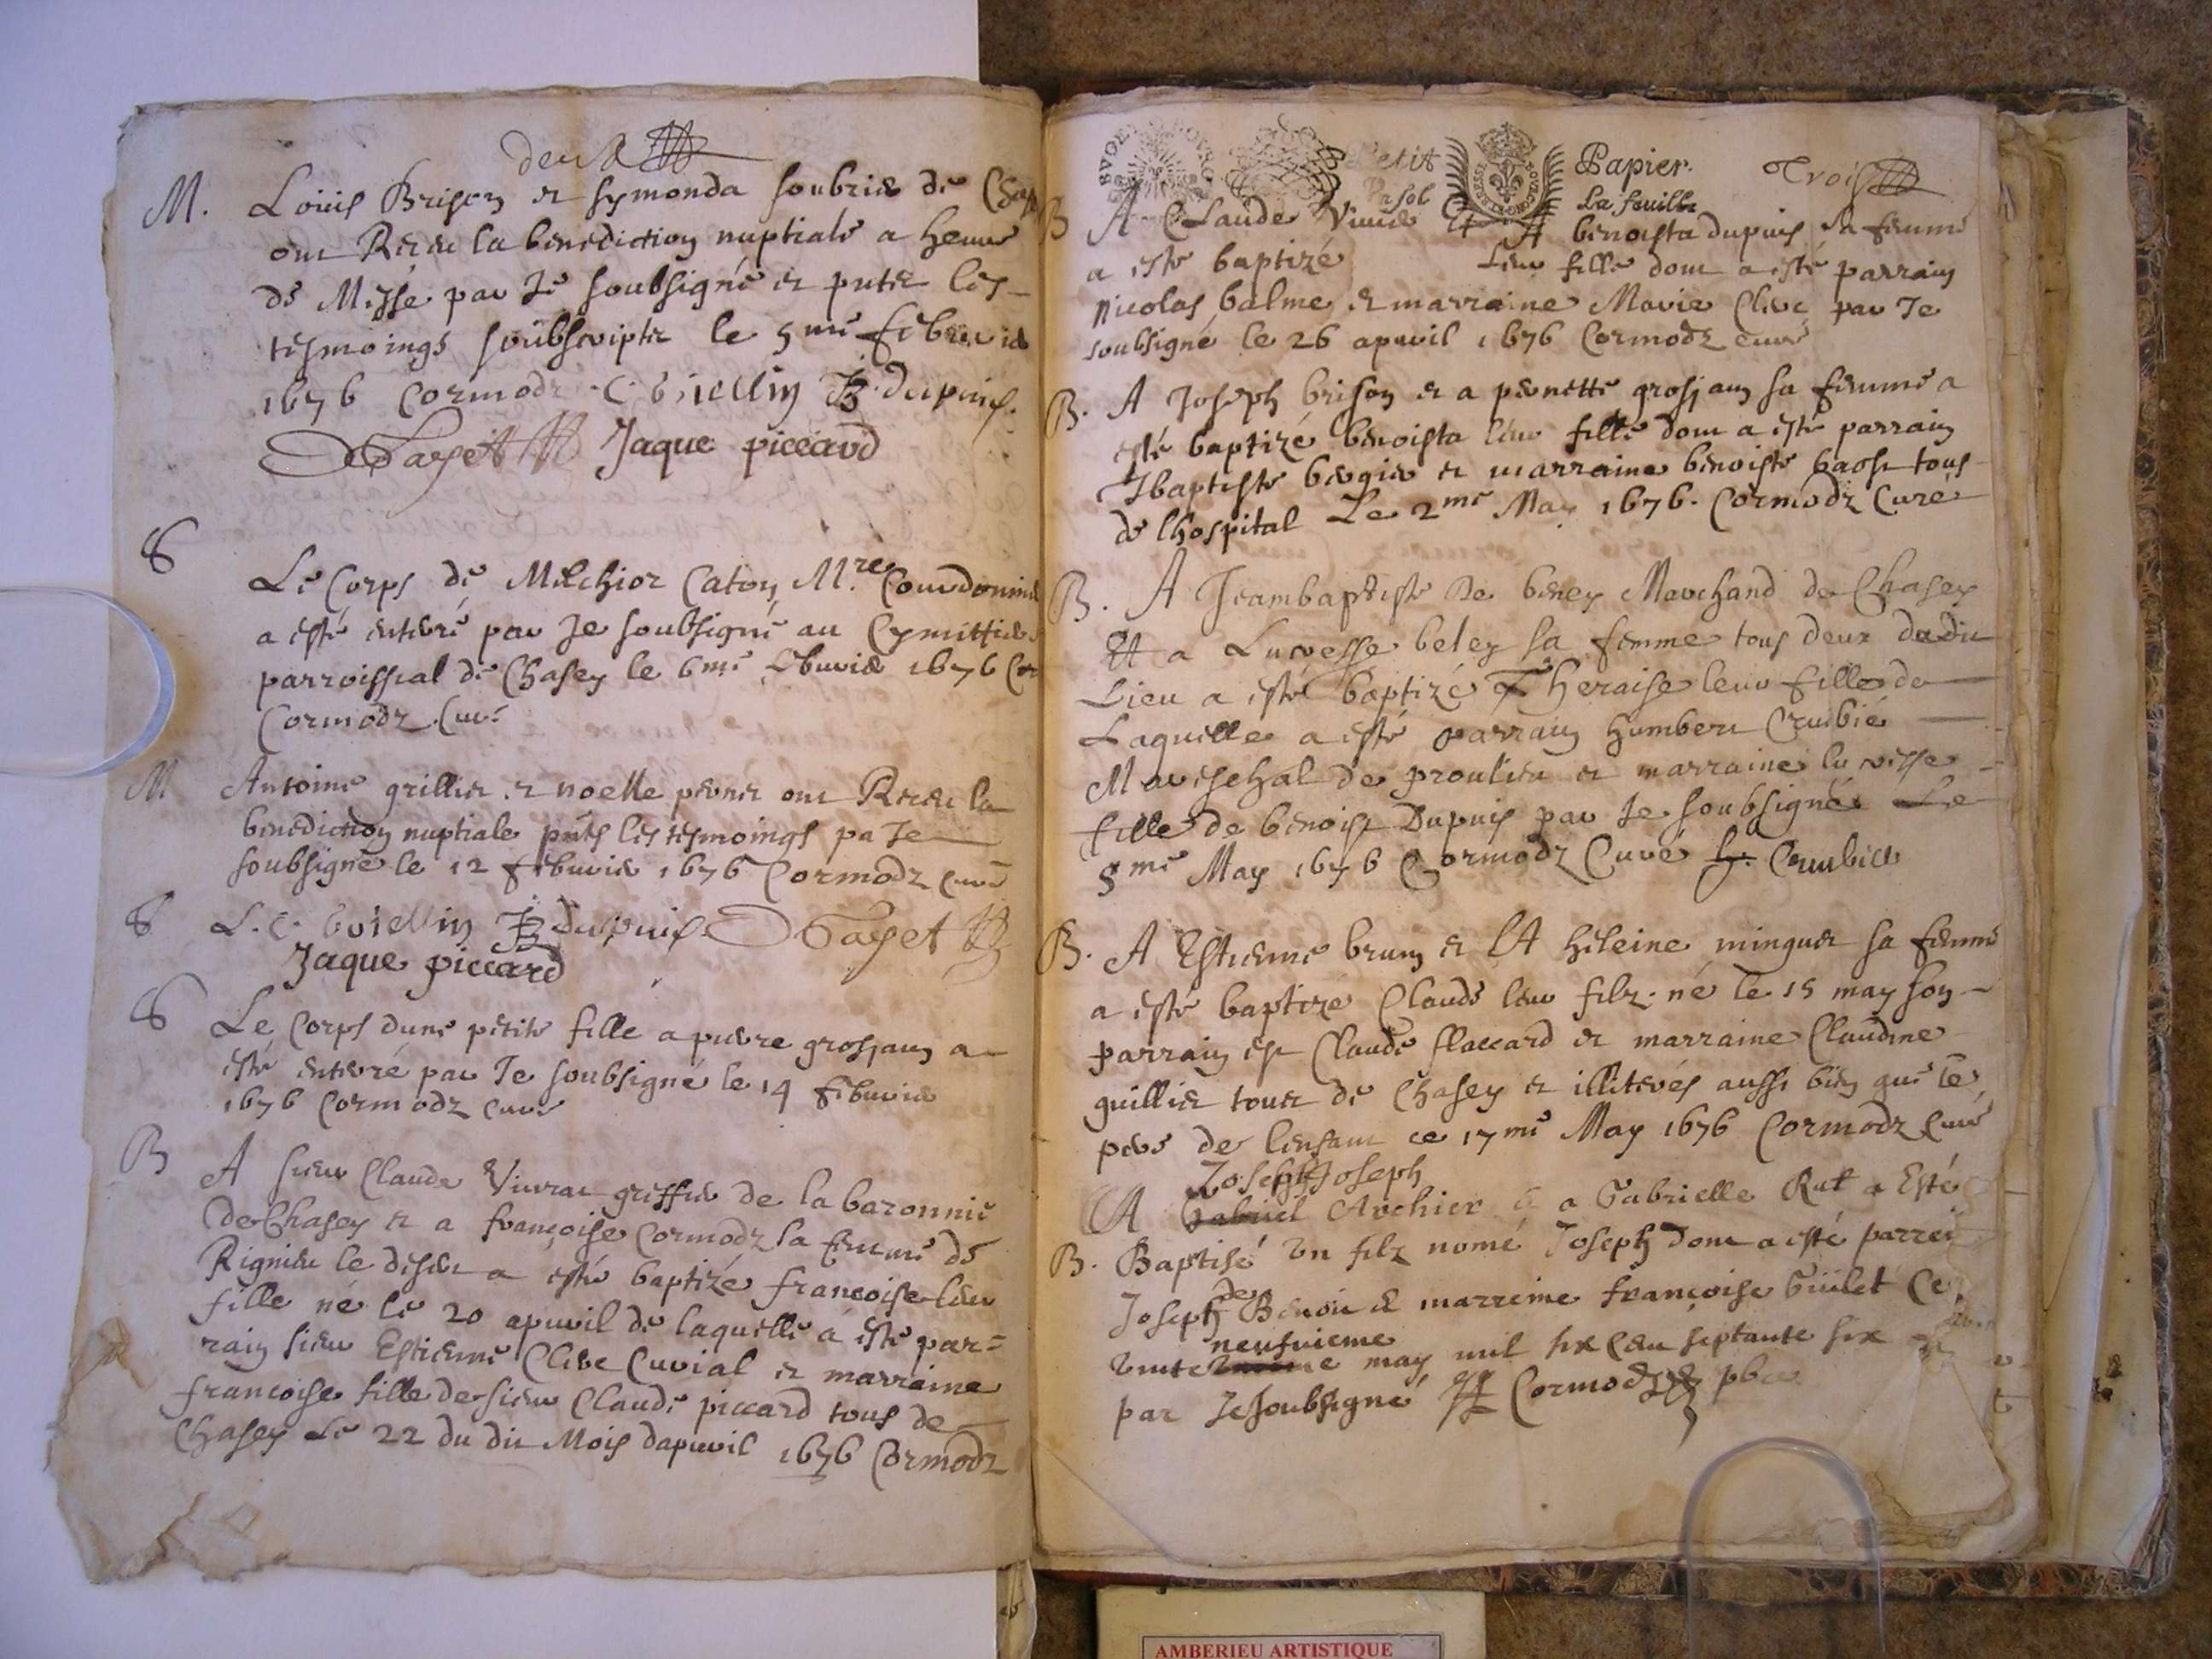 deux
M. Louis Brison et symonda soubrier de Chas
ont Receu la benediction nuptiale a heure
de Messe par Je soubsigné et pntz les
tesmoings soubscriptz le 5me febvrier
1676 Cormodz C. Guiellin JB. dupuis.
DSayet Jaque piccard
S Le Corps de Melchior Caton M.re Courdonnie
a esté enterré par Je soubsigné au Cymittier
parroissial de Chasey le 6me febvrier 1676
Cormodz Curé
M Antoine grillier et noelle perner ont Receu la
benediction nuptiale pnts les tesmoings pa Je
soubsigné le 12 febvrier 1676 Cormodz curé
S L. C. Guiellin JB dupuis DSayet
Jaque piccard
S Le Corps dune petite fille a pierre grosjean a
esté enterré par Je soubsigné le 14 febvrier
1676 Cormodz curé
B A sieur Claude Vivrat greffier de la baronnie
de Chasey et a françoise Cormodz sa femme de
Rignieu le desert a esté baptizé francoise leur
fille né le 20 apvril de laquelle a esté par=
rain sieur Estienne Clerc Curial et marraine
francoise fille de sieur Claude piccard tous de
Chasey Le 22 du dit Mois dapvril 1676 Cormodz
Petit Papier. Trois
La feuille
B A Claude Et A benoista dupuis sa femme
a este baptizé Leur fille dont a esté parrain
Nicolas balme et marraine Marie Clerc par Je
soubsigné le 26 apvril 1676 Cormodz curé
B. A Joseph brison et a pernette grosjean sa femme a
esté baptizé benoista leur fille dont a esté parrain
Jbaptiste bergier et marraine benoiste tous
de lhospital Le 2me May 1676. Cormodz Curé
B. A Jeambaptiste De beney Marchand de Chasey
Et a Lucresse beley sa femme tous deux dudit
Lieu a esté baptizé Theraise leur fille de
Laquelle a esté parrain humbert Crusbié
Mareschal de proulieu et marraine lucresse
fille de benoist Dupuis par Je soubsigné Le
5me May 1676 Cormodz Curé h.
B. A Estienne brun et A heleine minguet sa femme
a esté baptizé Claude leur filz. né le 15 may son
parrain est Claude flaccard et marraine Claudine
guillier tous de Chasey et illiterés aussi bien que le
pere de lenfant ce 17me May 1676 Cormodz Curé
Joseph Joseph
A Gabriel Archier a Gabrielle Rut a Esté
B. Baptisé Un filz nomé Joseph dont a esté parrei
de
Joseph Benoit & marreine françoise Giilet Ce
neufvieme
may mil six cent septante six
par Je soubsigné Cormodz pbre
AMBERIEU ARTISTIQUE